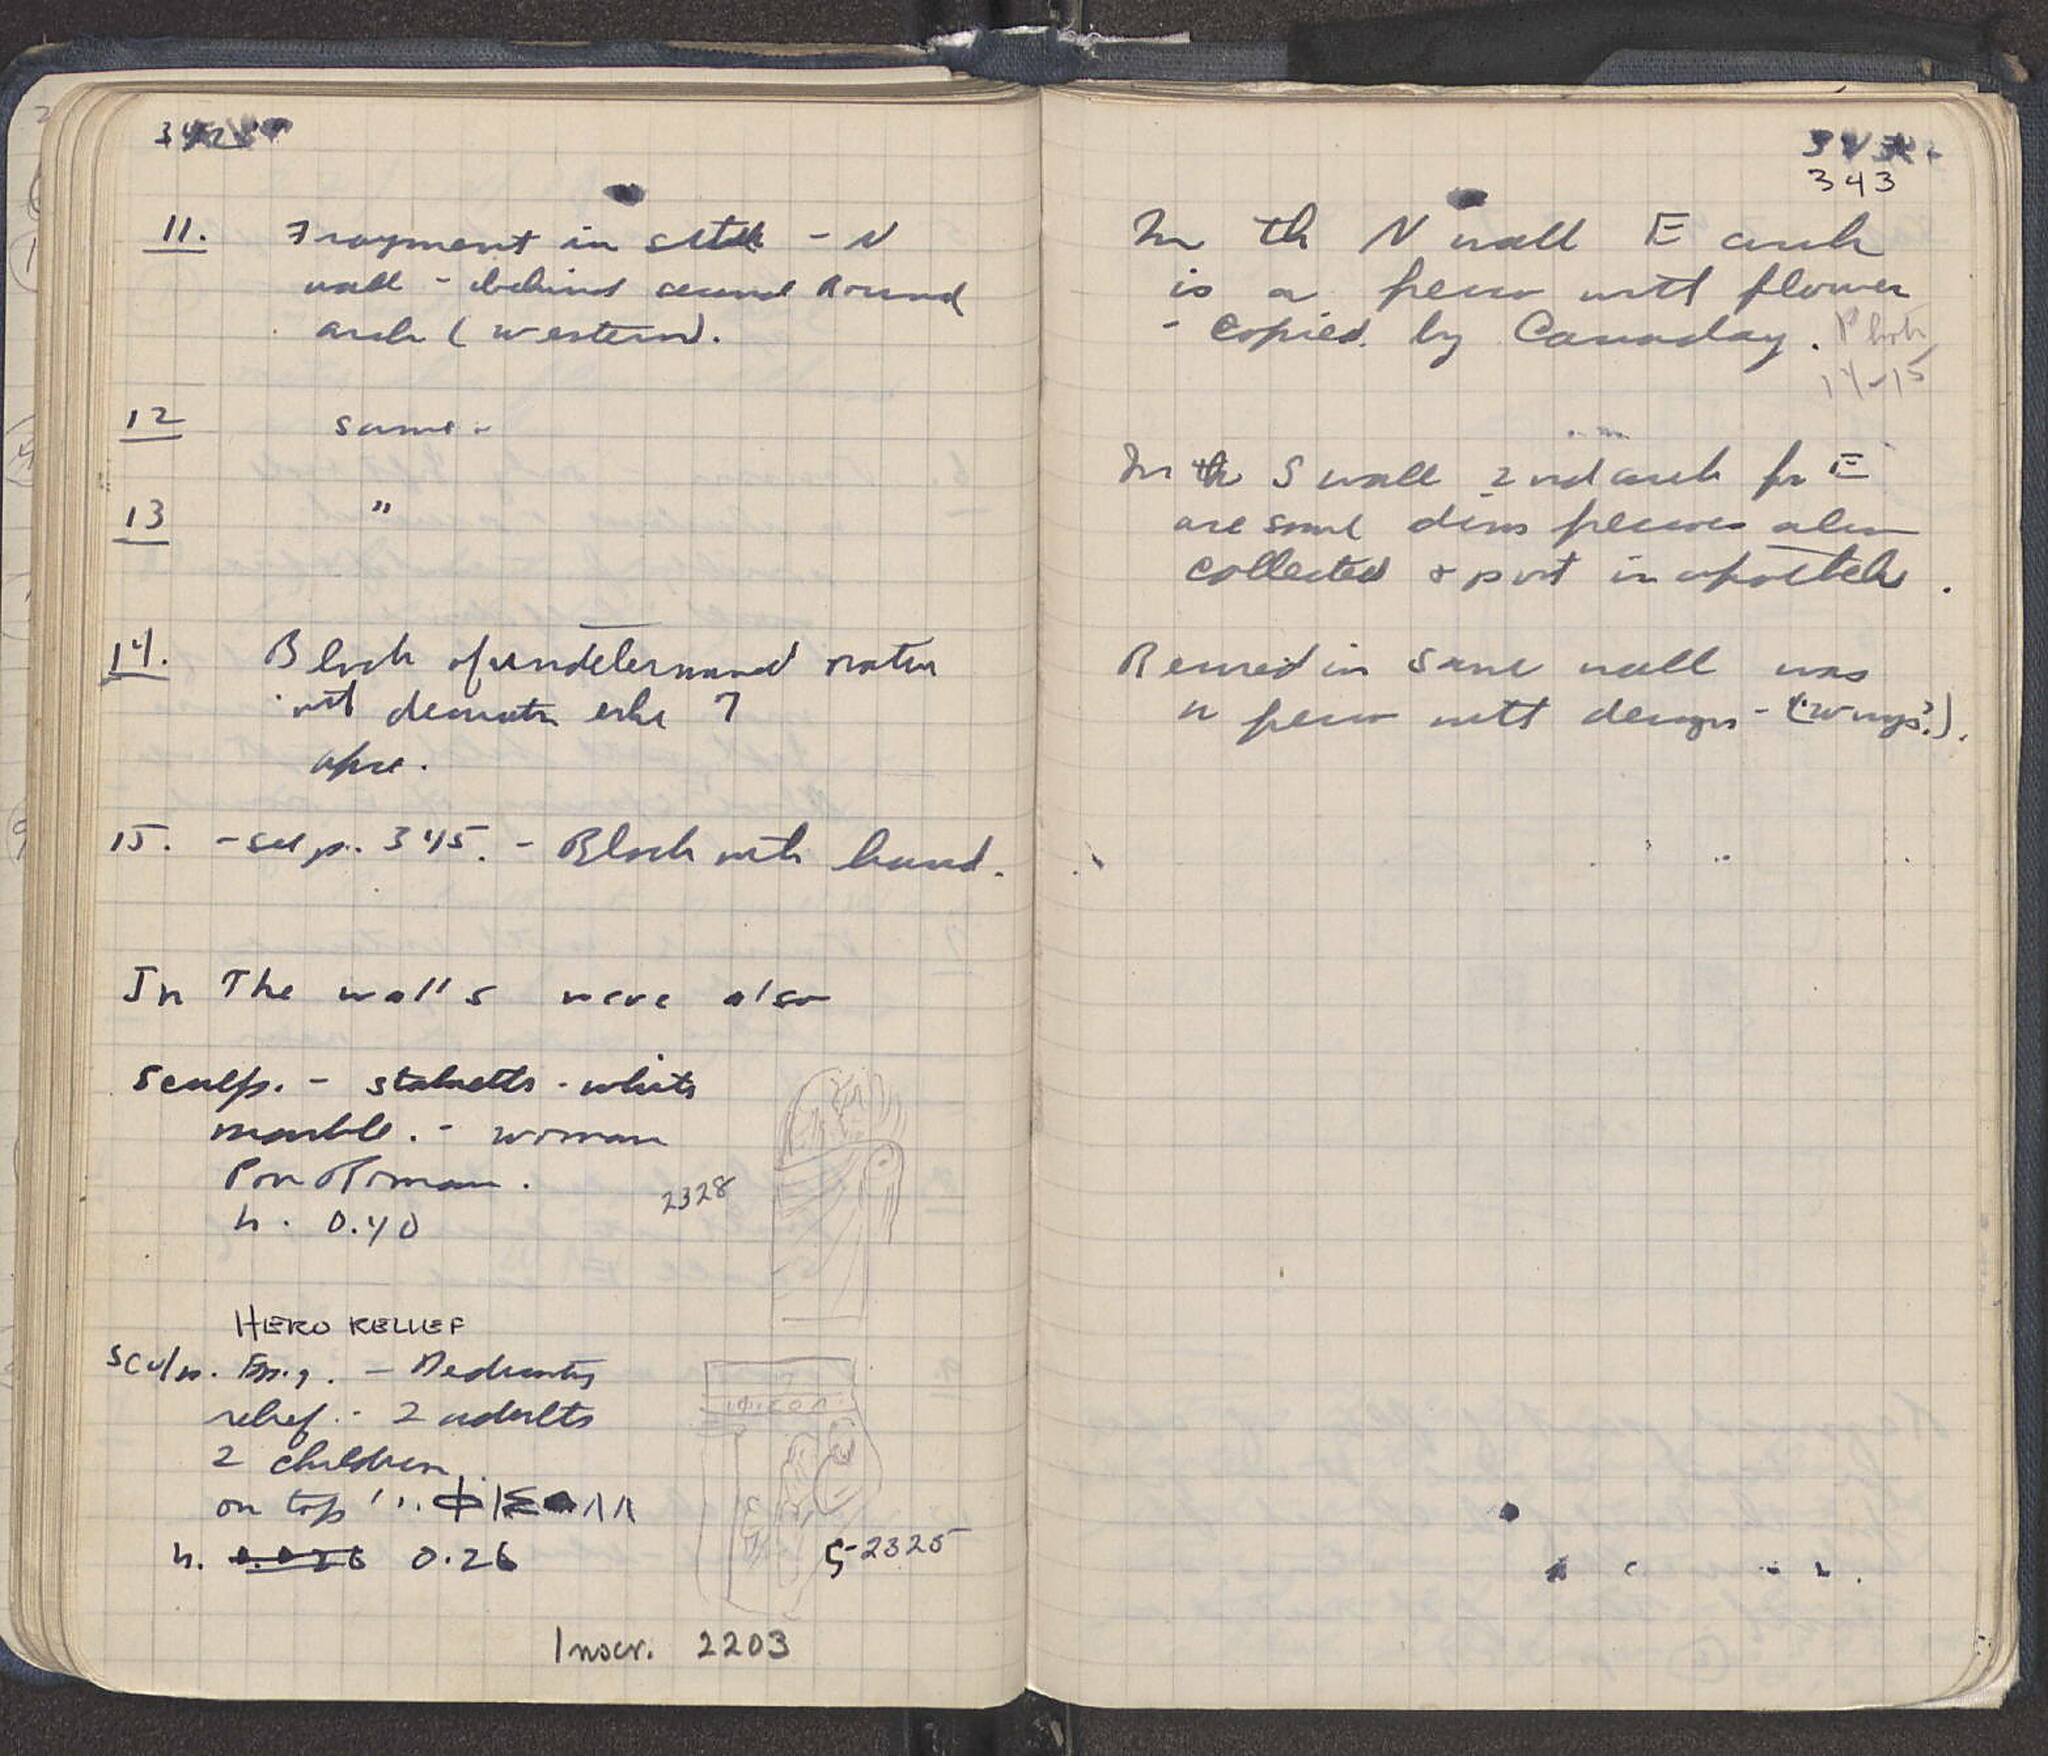 342
11. Fragment in situ - N
wall - behind second Round
arch (western).
12 same -
13 "
14. Block of undetermined nature
with decoration else ?
apse.
15. - see p. 345. - Block with hand.
In The walls were also
Sculp. - statuette - white
marble. - woman
Poor Roman.
h. 0.40
2328
HERO RELIEF
Sculp. Frg. -
relief. - 2 adults
2 children
on top
h. 0.26
S-2325
Inscr. 2203
343
In the N wall E arch
is a piece with flower
- copied by Canaday. Photo
14-15
In the S wall 2nd arch fr E
are some dims pieces also
collected & put in apotheke.
Reused in same wall was
a piece with design - (wings?).